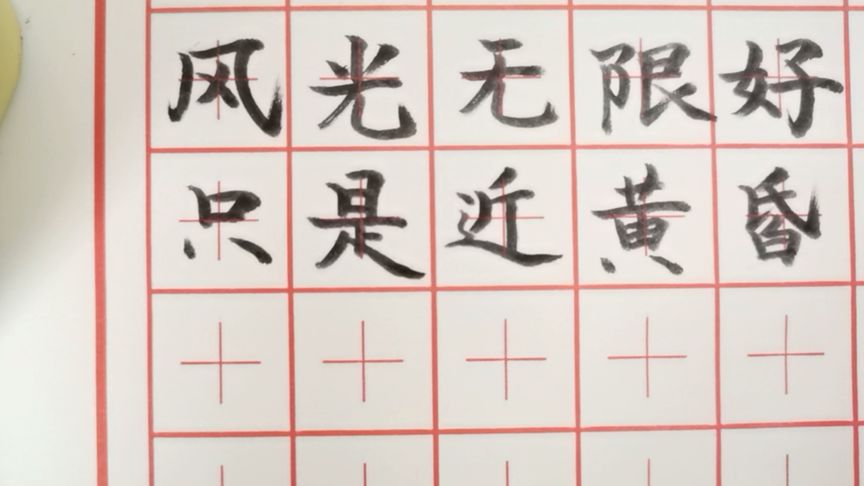 风光无限好
只是近黄昏